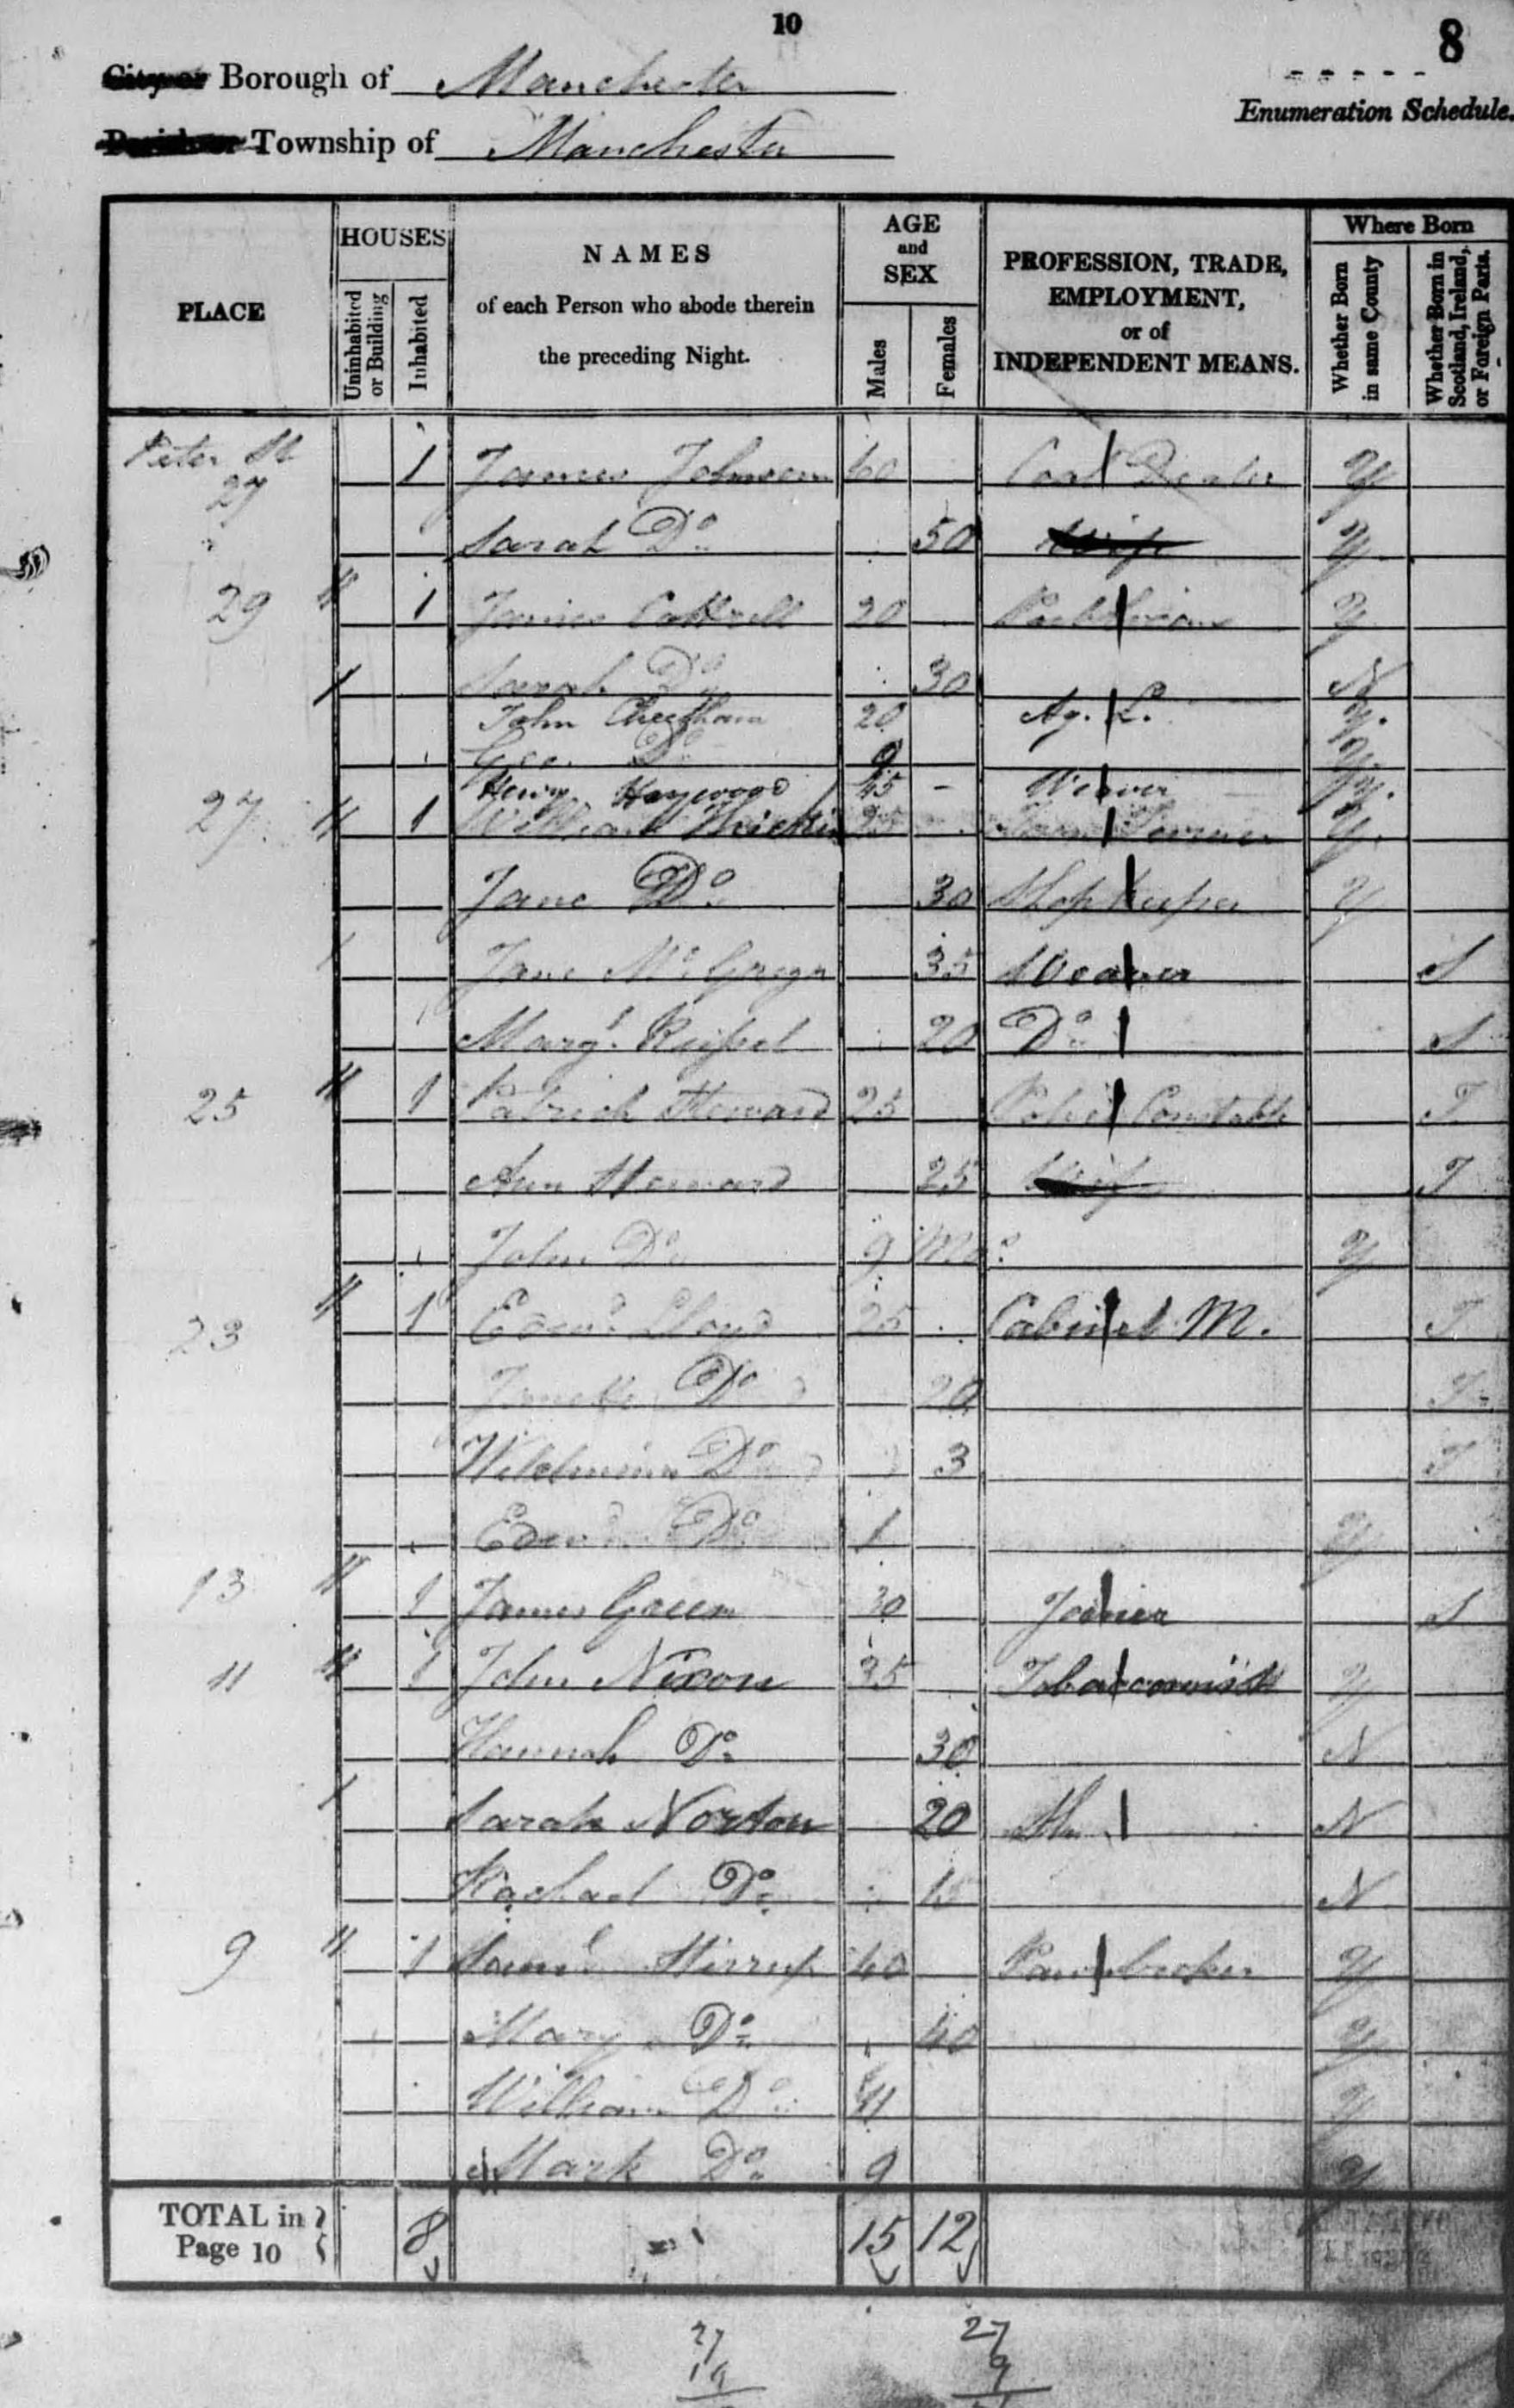 10
8
City or Borough of Manchester
Enumeration Schedule.
Parish or Township of Manchester
PLACE HOUSES NAMES of each Person who abode therein the preceding Night. AGE and SEX PROFESSION, TRADE, EMPLOYMENT, or of INDEPENDENT MEANS. Where Born
Uninhabited or Building Inhabited Males Females Whether Born in same County Whether Born in Scotland, Ireland, or Foreign Parts.
Peter St 27 1 James Johnson 60 Coal Dealer Y
Sarah Do 50 Wife Y
29 1 James Cottrell 20 Publican Y
Sarah Do 30 N
John Cheetham 20 Ag. L. Y.
Geo. Do 9 Y.
Henry Haywood 45 - Weaver Y.
27 1 William 25 Y.
Jane Do 30 Shop Keeper Y
Jane McGregor 35 Weaver S
Margt. Russel 20 Do S
25 1 Patrick Steward 25 Police Constable I
Ann Steward 25 Wife I
John Do 9 Mos. Y
23 1 Edwd. Lloyd 25 Cabinet M. I
Do 20 I
Do 3 I
Edwd Do 1 Y
13 1 James Green 30 Joiner S
11 1 John Nixon 35 Tobacconist Y
Hannah Do 30 N
Sarah Norton 20 N
Rachael Do 15 N
9 1 Saml. Stirrup 40 Pawnbroker Y
Mary Do 40 Y
William Do 11 Y
Mark Do 9 Y
TOTAL in Page 10 8 15 12
27 27
19 9